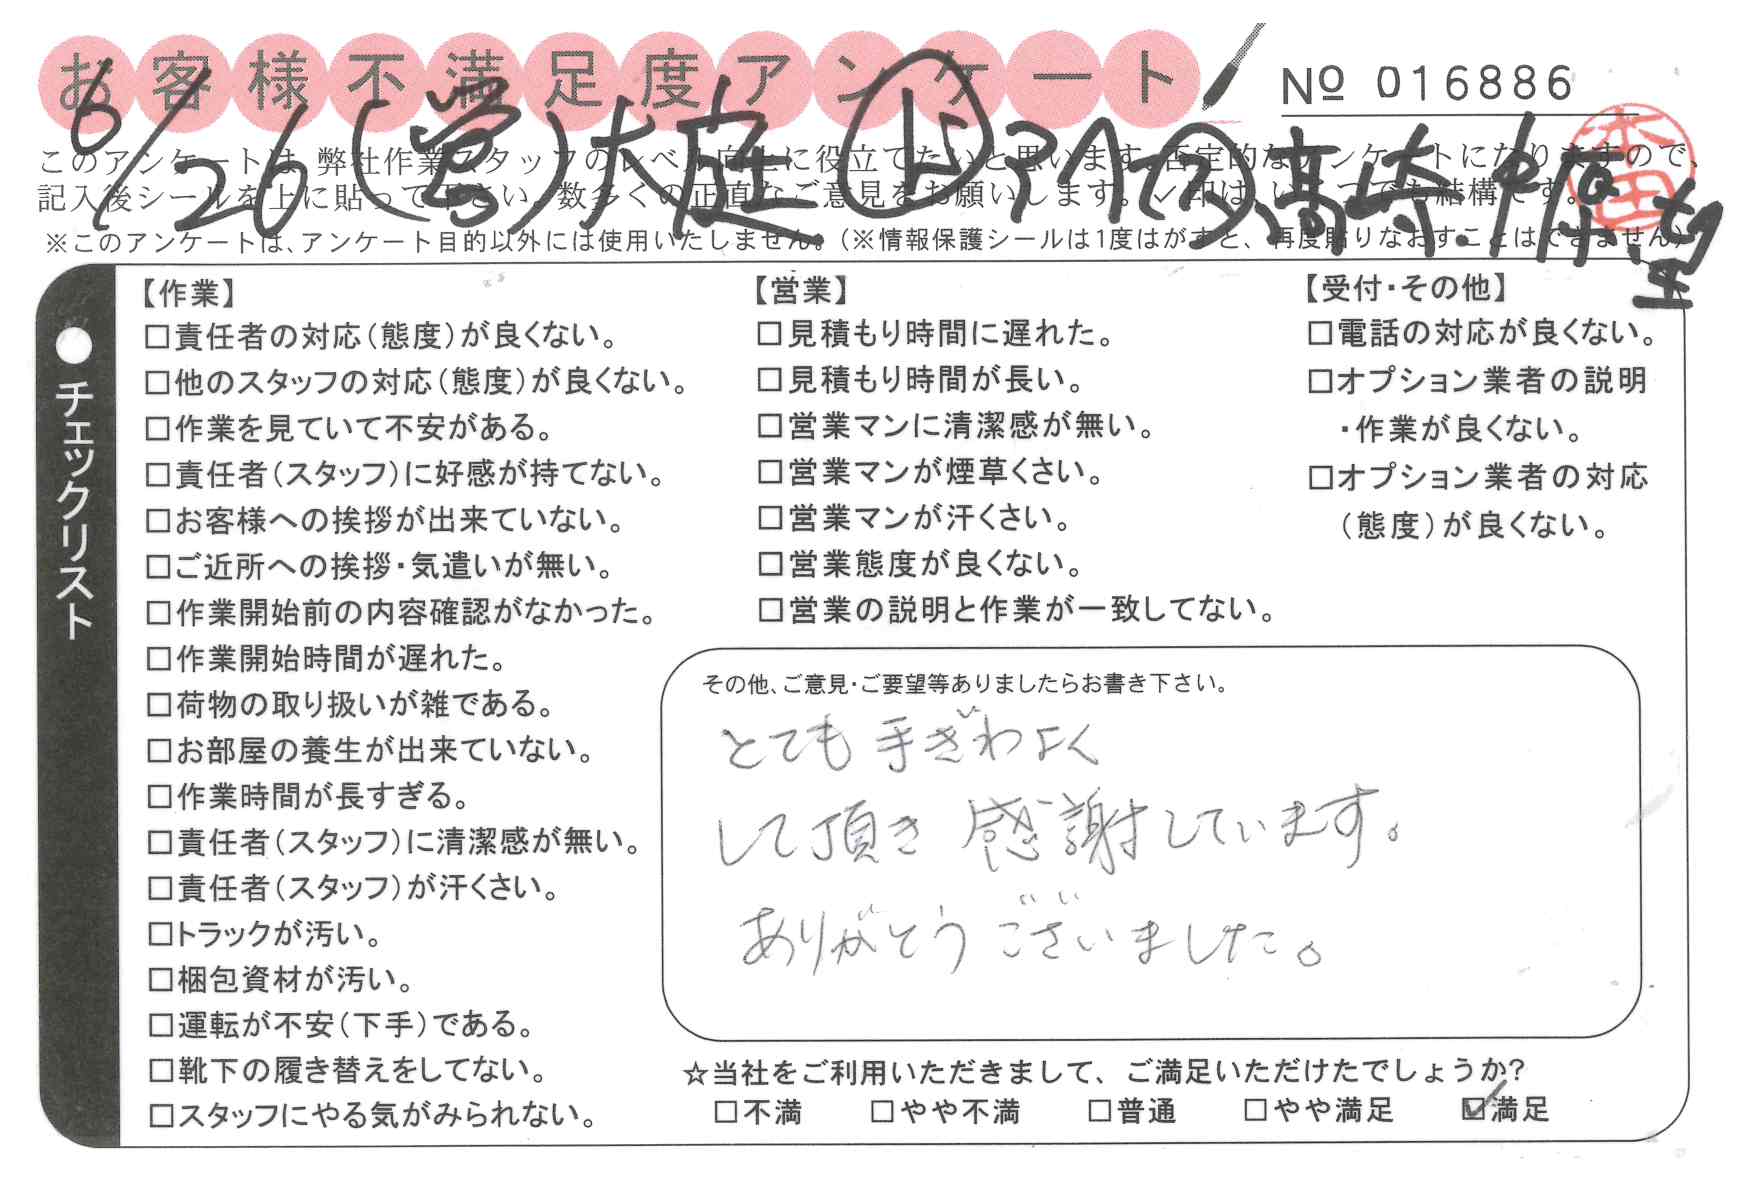 お客様不満足度アンケート
№ 016886
6/26(営)大庭
高崎.中原.
このアンケートは、弊社作業スタッフのレベル向上に役立てたいと思います。否定的なアンケートになりますので、
記入後シールを上に貼って下さい。数多くの正直なご意見をお願いします。✓印は、いくつでも結構です。
※このアンケートは、アンケート目的以外には使用いたしません。(※情報保護シールは1度はがすと、再度貼りなおすことはできません)
●チェックリスト
【作業】
□責任者の対応(態度)が良くない。
□他のスタッフの対応(態度)が良くない。
□作業を見ていて不安がある。
□責任者(スタッフ)に好感が持てない。
□お客様への挨拶が出来ていない。
□ご近所への挨拶・気遣いが無い。
□作業開始前の内容確認がなかった。
□作業開始時間が遅れた。
□荷物の取り扱いが雑である。
□お部屋の養生が出来ていない。
□作業時間が長すぎる。
□責任者(スタッフ)に清潔感が無い。
□責任者(スタッフ)が汗くさい。
□トラックが汚い。
□梱包資材が汚い。
□運転が不安(下手)である。
□靴下の履き替えをしてない。
□スタッフにやる気がみられない。
【営業】
□見積もり時間に遅れた。
□見積もり時間が長い。
□営業マンに清潔感が無い。
□営業マンが煙草くさい。
□営業マンが汗くさい。
□営業態度が良くない。
□営業の説明と作業が一致してない。
【受付・その他】
□電話の対応が良くない。
□オプション業者の説明
・作業が良くない。
□オプション業者の対応
(態度)が良くない。
その他、ご意見・ご要望等ありましたらお書き下さい。
とても手ぎわよく
して頂き感謝しています。
ありがとうございました。
☆当社をご利用いただきまして、ご満足いただけたでしょうか?
□不満 □やや不満 □普通 □やや満足 ☑満足